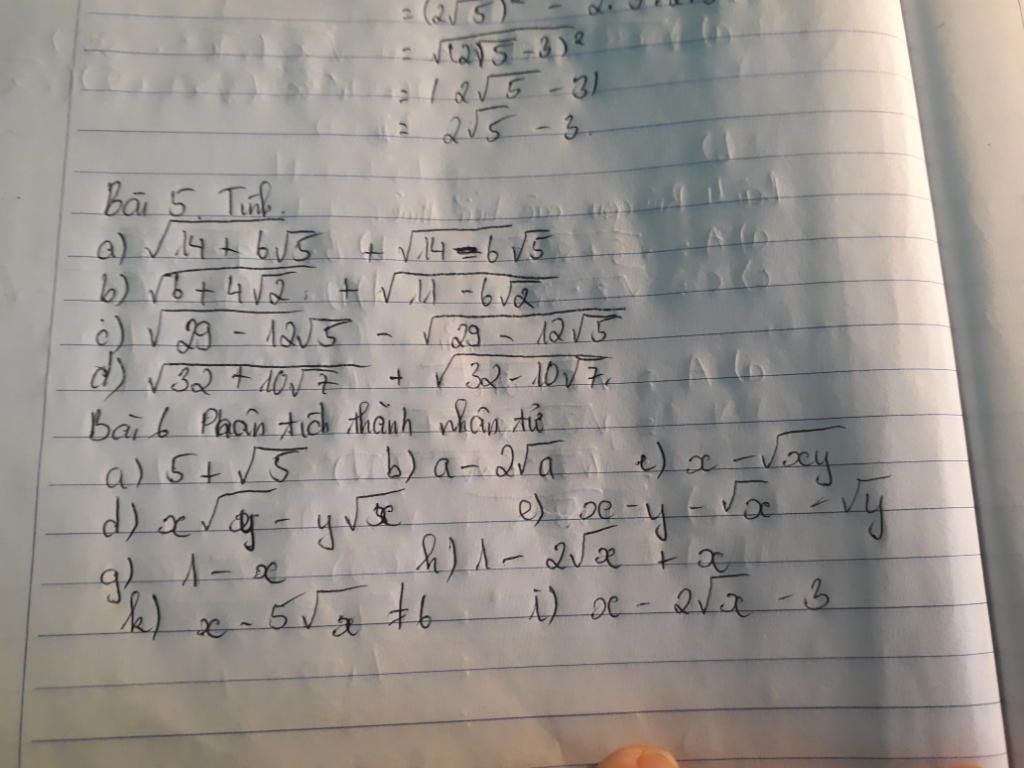 = (2√5)² - 2.
= √(2√5 - 3)²
= | 2√5 - 3|
= 2√5 - 3.
Bài 5. Tính.
a) √14 + 6√5 + √14 - 6√5
b) √6 + 4√2 + √11 - 6√2
c) √29 - 12√5 - √29 - 12√5
d) √32 + 10√7 + √32 - 10√7.
Bài 6 Phân tích thành nhân tử
a) 5 + √5 b) a - 2√a c) x - √xy
d) x√y - y√x e) x - y - √x - √y
g) 1 - x h) 1 - 2√x + x
k) x - 5√x + 6 i) x - 2√x - 3